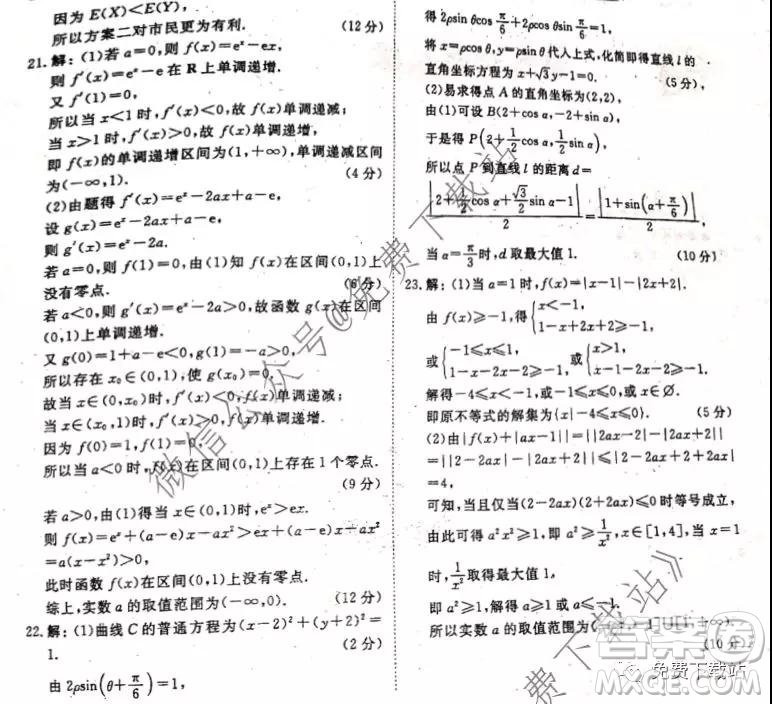 因为 E(X)<E(Y),
所以方案二对市民更为有利. (12 分)
21. 解: (1)若 a=0,则 f(x)=eˣ-ex,
则 f′(x)=eˣ-e 在 R 上单调递增.
又 f′(1)=0,
所以当 x<1 时,f′(x)<0,故 f(x)单调递减;
当 x>1 时,f′(x)>0,故 f(x)单调递增,
即 f(x)的单调递增区间为(1,+∞),单调递减区间
为(-∞,1). (4 分)
(2)由题得 f′(x)=eˣ-2ax+a-e,
设 g(x)=eˣ-2ax+a-e,
则 g′(x)=eˣ-2a.
若 a=0,则 f(1)=0,由(1)知 f(x)在区间(0,1)上
没有零点. (6 分)
若 a<0,则 g′(x)=eˣ-2a>0,故函数 g(x)在区间
(0,1)上单调递增.
又 g(0)=1+a-e<0,g(1)=-a>0,
所以存在 x₀∈(0,1),使 g(x₀)=0.
故当 x∈(0,x₀)时,f′(x)<0,f(x)单调递减;
当 x∈(x₀,1)时,f′(x)>0,f(x)单调递增.
因为 f(0)=1,f(1)=0,
所以当 a<0 时,f(x)在区间(0,1)上存在 1 个零点.
(9 分)
若 a>0,由(1)得当 x∈(0,1)时,eˣ>ex.
则 f(x)=eˣ+(a-e)x-ax²>ex+(a-e)x-ax²
=a(x-x²)>0,
此时函数 f(x)在区间(0,1)上没有零点.
综上,实数 a 的取值范围为(-∞,0). (12 分)
22. 解: (1)曲线 C 的普通方程为(x-2)²+(y+2)²=
1. (2 分)
由 2ρsin(θ+π/6)=1,
得 2ρsin θcos π/6+2ρcos θsin π/6=1,
将 x=ρcos θ,y=ρsin θ 代入上式,化简即得直线 l 的
直角坐标方程为 x+√3y-1=0. (5 分)
(2)易求得点 A 的直角坐标为(2,2),
由(1)可设 B(2+cos α,-2+sin α),
于是得 P(2+1/2cos α,1/2sin α),
所以点 P 到直线 l 的距离 d=
|2+1/2cos α+√3/2sin α-1|/2=|1+sin(α+π/6)|/2,
当 α=π/3时,d 取最大值 1. (10 分)
23. 解: (1)当 a=1 时,f(x)=|x-1|-|2x+2|.
由 f(x)≥-1,得{x<-1, 1-x+2x+2≥-1,
或{-1≤x≤1, 1-x-2x-2≥-1,或{x>1, x-1-2x-2≥-1.
解得-4≤x<-1 或-1≤x≤0 或 x∈∅.
即原不等式的解集为{x|-4≤x≤0}. (5 分)
(2)由|f(x)+|ax-1||=||2ax-2|-|2ax+2||
=||2-2ax|-|2ax+2||≤|2-2ax+2+2ax|=
4,
可知,当且仅当(2-2ax)(2+2ax)≤0 时等号成立,
由此可得 a²x²≥1,即 a²≥1/x²,x∈[1,4],当 x=1
时,1/x²取得最大值 1,
即 a²≥1,解得 a≥1 或 a≤-1.
所以实数 a 的取值范围为 -1]∪[1,+∞).
(10 分)
微信公众号@免费下载站
免费下载站》
答案圈
MXQE.COM
免费下载站